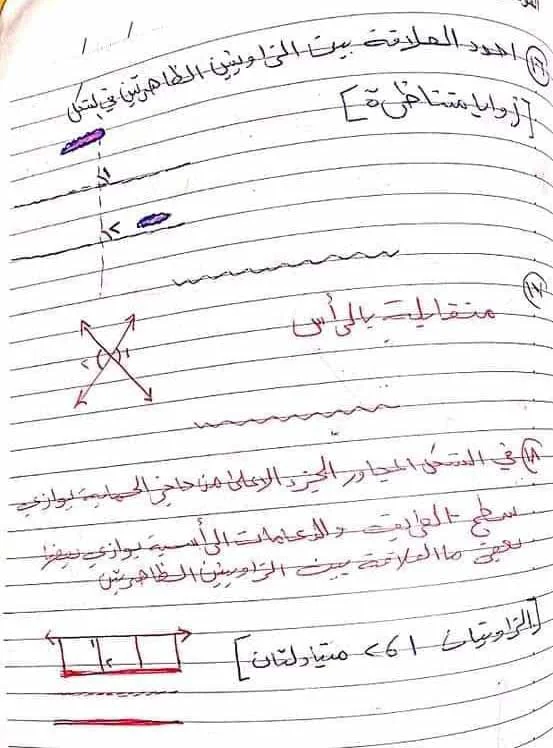 ١٦ احدد العلاقة بين الزاويتين الظاهرتين في الشكل
[زوايا متناظرة]
١
٢
١٧
متقابلة بالرأس
٢ ١
١٨ في الشكل المجاور الجزء الاعلى من حاجز الحماية يوازي
سطح الطريق والدعامات الرأسية يوازي بعضها
بعض ما العلاقة بين الزاويتين الظاهرتين
[الزاويتان ١ و ٢ متبادلتان]
١
٢